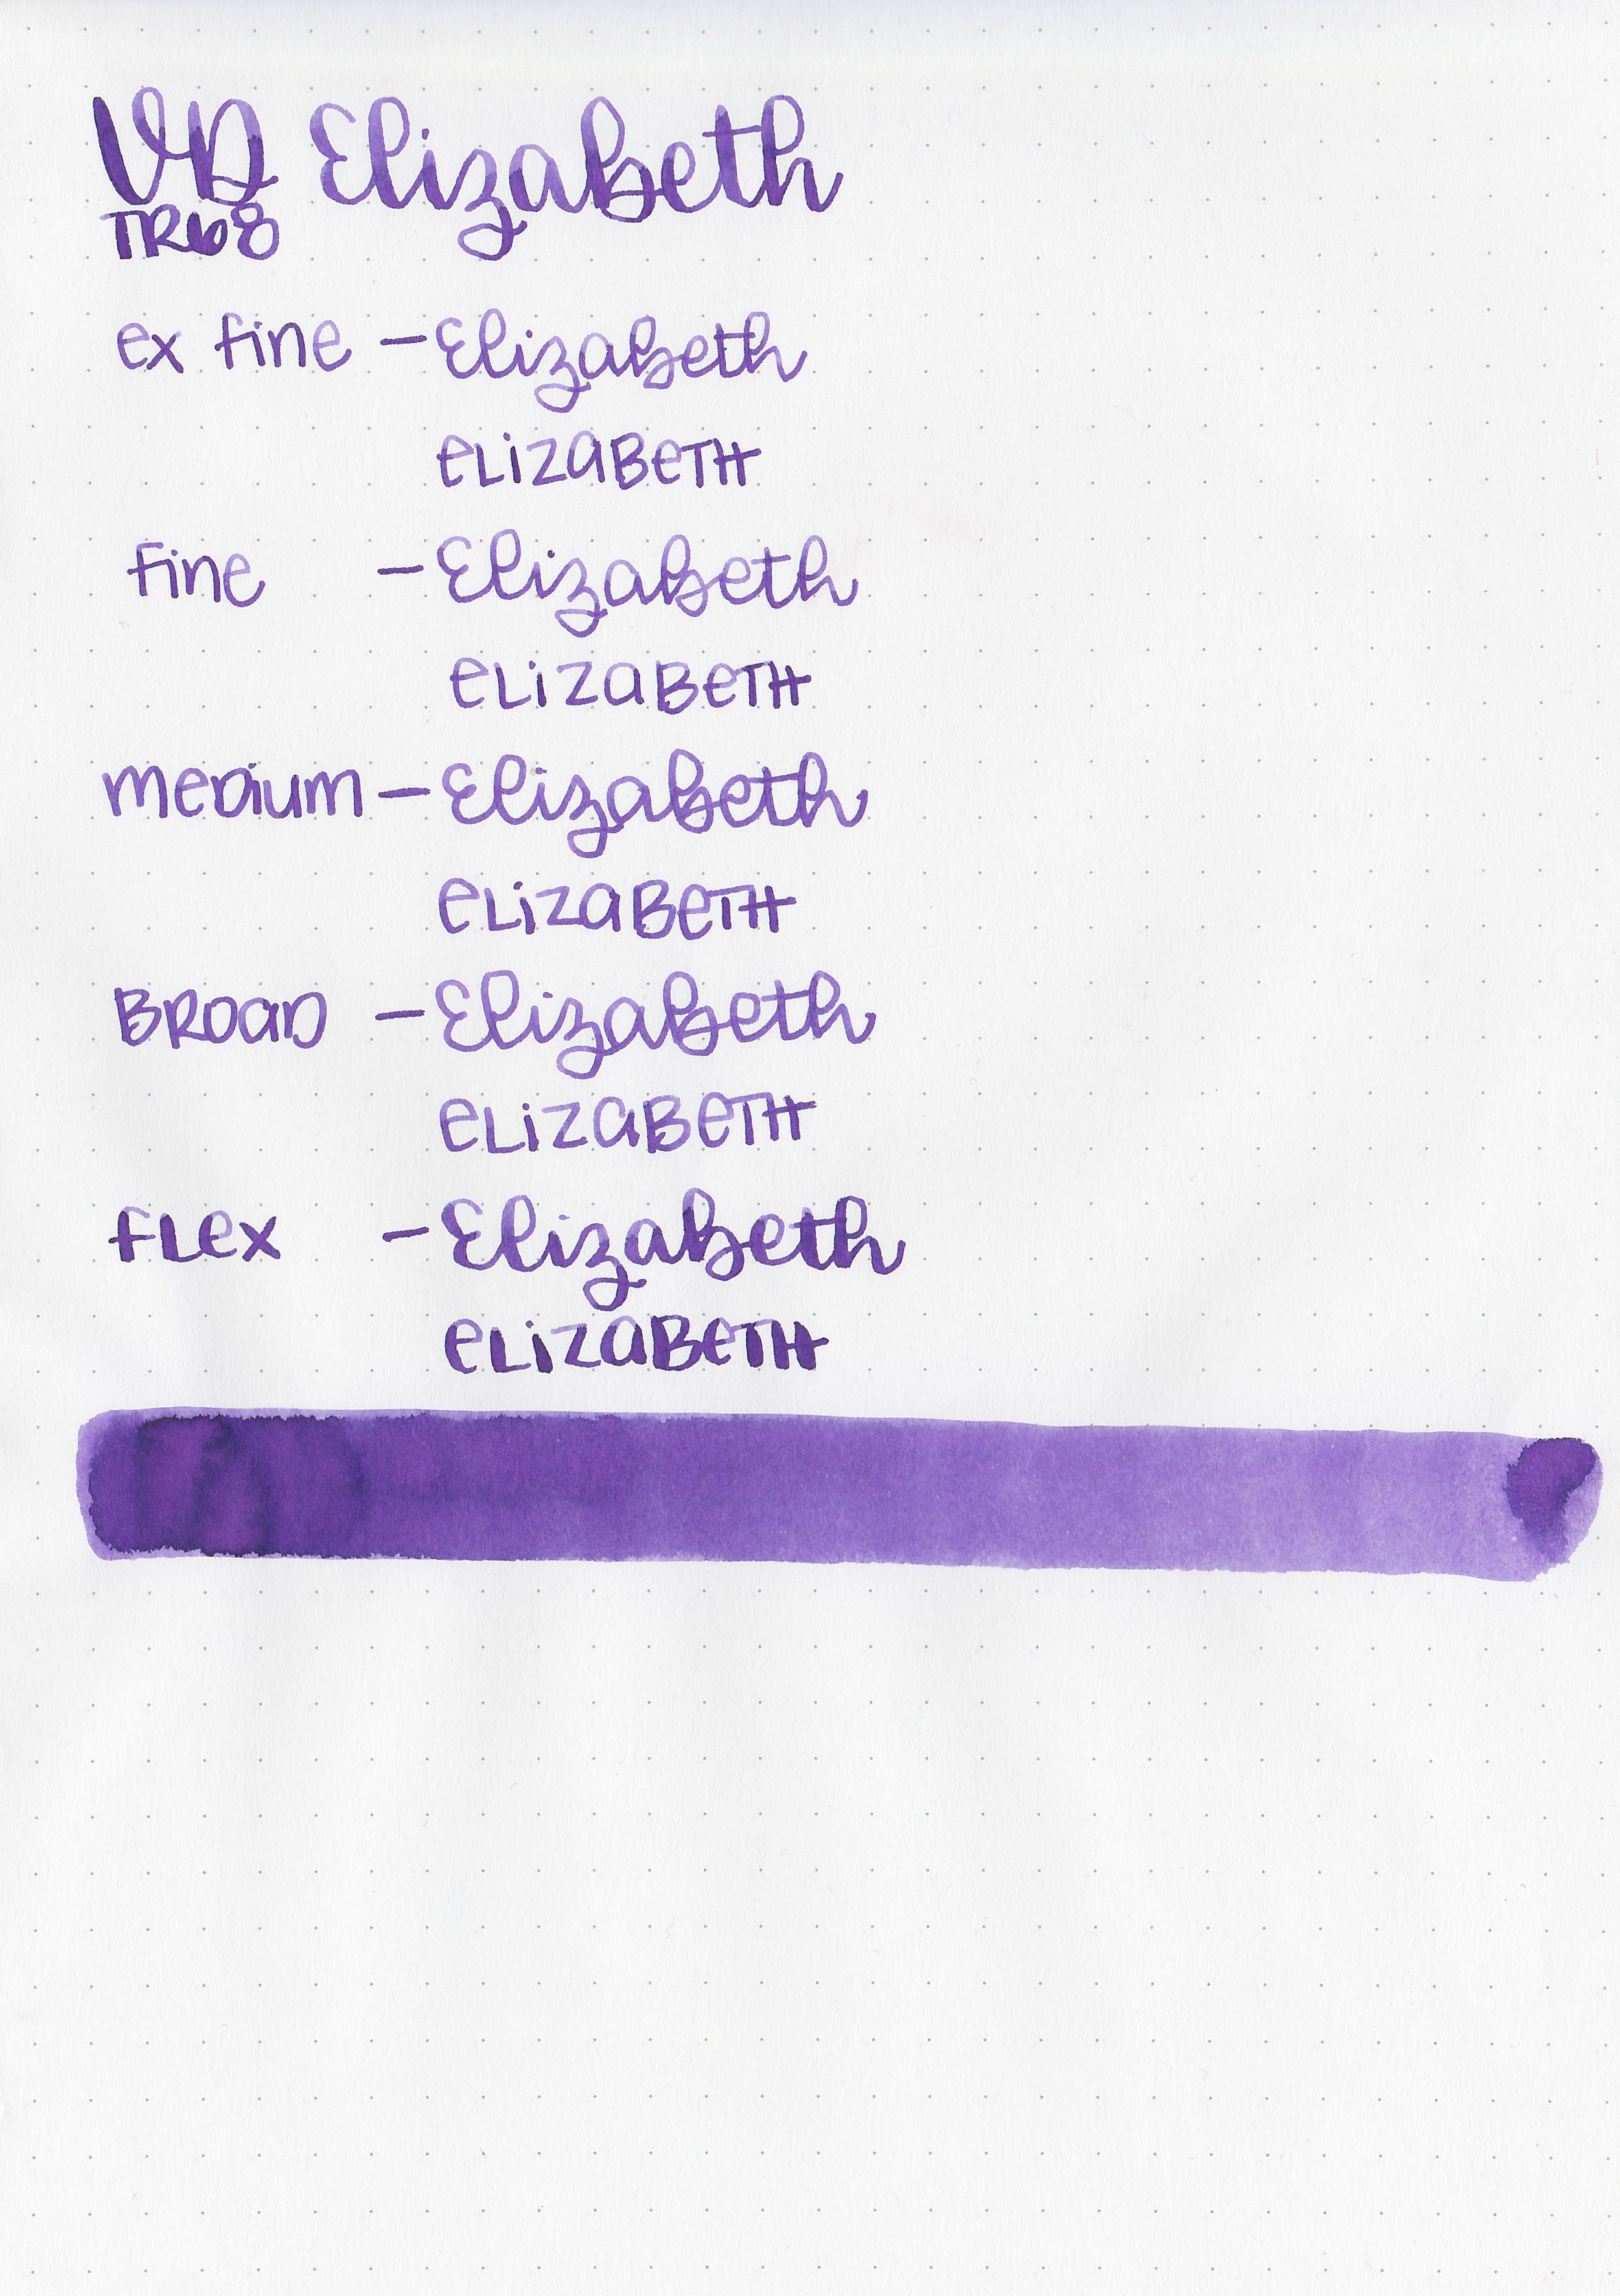 VD Elizabeth
TR68
ex fine - Elizabeth
eLizaBeTH
fine - Elizabeth
eLizaBeTH
medium - Elizabeth
eLizaBeTH
BROAD - Elizabeth
eLizaBeTH
fLex - Elizabeth
eLizaBeTH